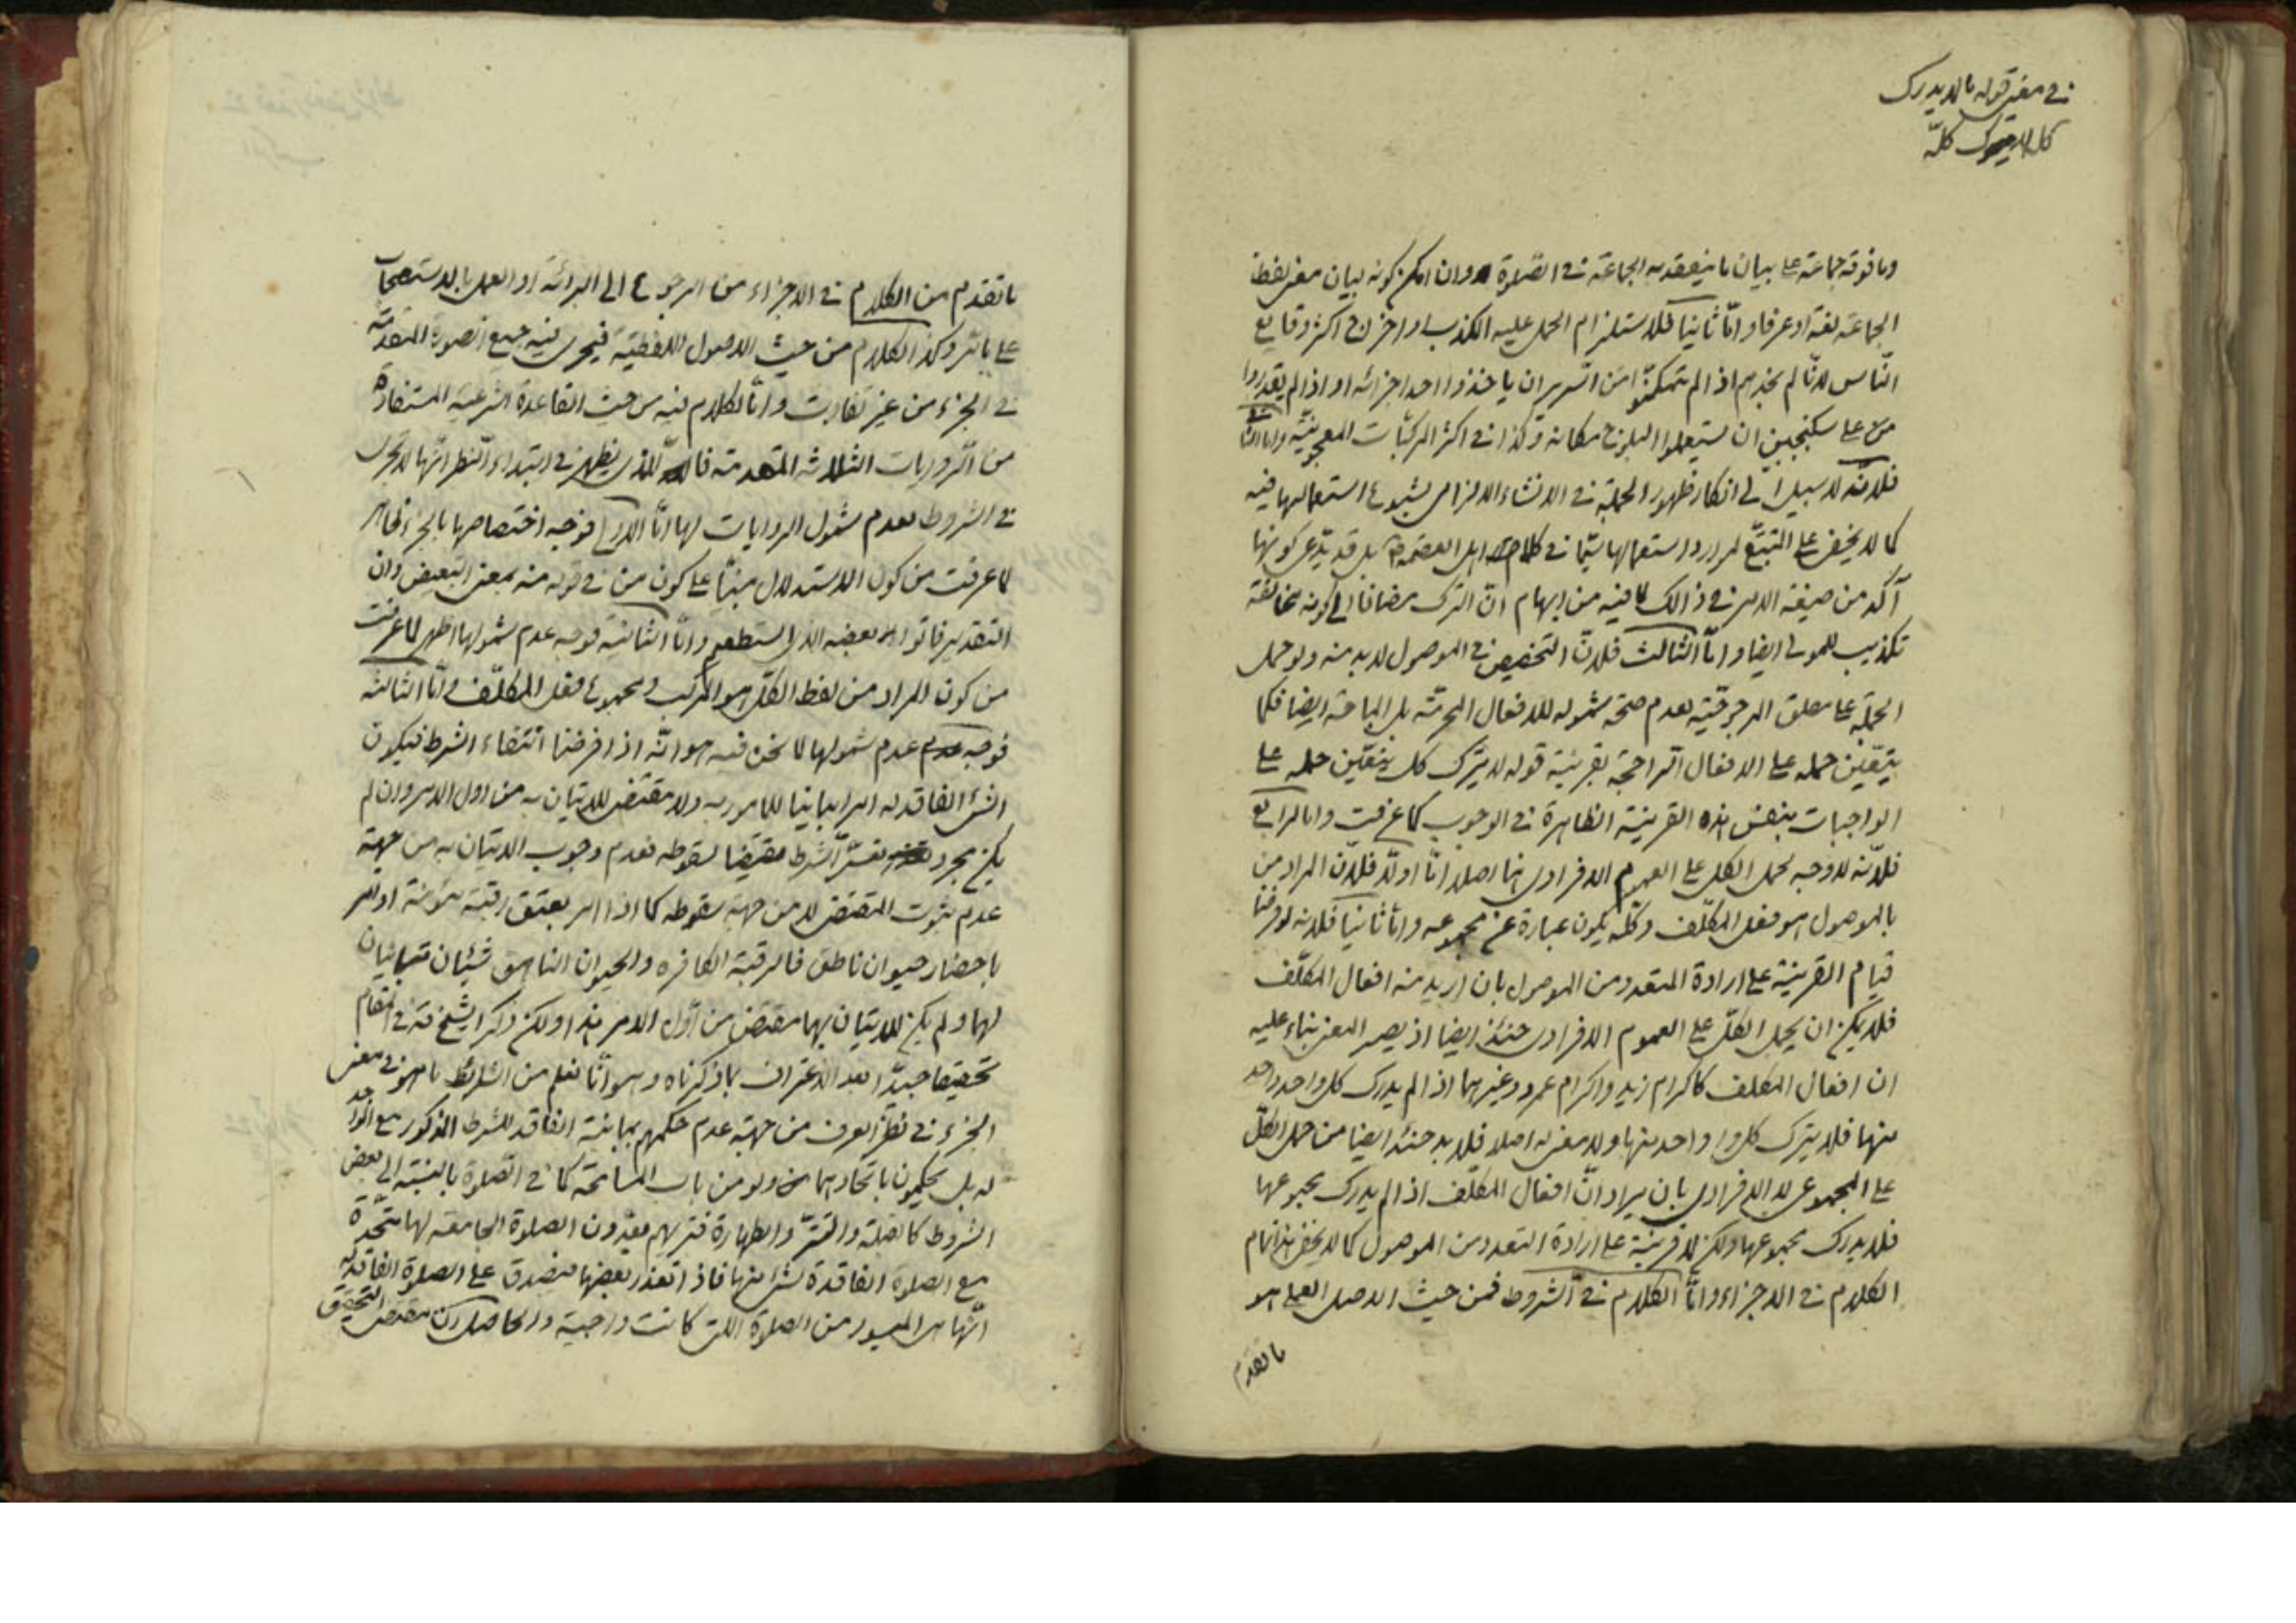 في معنى قوله ما لا يدرك
كله لا يترك كله
وما فوقه جماعة على بيان ما ينعقد به الجماعة في الصلوة وان امكن كونه لبيان معنى لفظ
الجماعة لغة او عرفا واما ثانيا فلاستلزام الحمل عليه الكذب او اخراج اكثر وقايع
الناس لانا لم نجدهم اذا لم يتمكنوا من ان ياخذوا احد اجزائه او اذا لم يقدروا
على سكنجبين ان يستعملوا مكانه وكذا في اكثر المركبات المعجونية واما الثالث
فلانه لا سبيل الى انكار ظهور الجملة في الانشاء الالزامي لشيوع استعمالها فيه
كما لا يخفى على المتتبع لموارد استعمالها سيما في كلام اهل العصمة بل قد يدعى كونها
آكد من صيغة الامر في ذالك لما فيه من ايهام ان الترك مضافا الى كونه مخالفة
تكذيب للمولى ايضا واما الثالث فلان التخصيص في الموصول لا بد منه ولو حمل
الجملة على مطلق المرجوحية لعدم صحة شموله للافعال المحرمة بل المباحة ايضا فكما
يتعين حمله على الافعال الراجحة بقرينة قوله لا يترك كك يتعين حمله على
الواجبات بنفس هذه القرينة الظاهرة في الوجوب كما عرفت واما الرابع
فلانه لا وجه لحمل الكل على العموم الافرادي هنا اصلا اما اولا فلان المراد من
بالموصول هو فعل المكلف وكله يكون عبارة عن مجموعه واما ثانيا فلانه لو فرضنا
قيام القرينة على ارادة المتعدد من الموصول بان اريد منه افعال المكلف
فلا يمكن ان يحمل الكل على العموم الافرادي حينئذ ايضا اذ يصير المعنى بناء عليه
ان افعال المكلف كاكرام زيد واكرام عمرو وغيرهما اذا لم يدرك كل واحد واحد
منها فلا يترك كل واحد منها ولا معنى له اصلا فلا بد حينئذ ايضا من حمل الكل
على المجموعي لا الافرادي بان يراد ان افعال المكلف اذا لم يدرك مجموعها
فلا يدرك مجموعها ولكن لا قرينة على ارادة المتعدد من الموصول كما لا يخفى هذا تمام
الكلام في الاجزاء واما الكلام في الشروط فمن حيث الاصل العملي هو
ما تقدم
ما تقدم من الكلام في الاجزاء من الرجوع الى البرائة او العمل بالاستصحاب
على ما مر وكذا الكلام من حيث الاصول اللفظية فيجري فيه جميع الصور المتقدمة
في الجزء من غير تفاوت واما الكلام فيه من حيث القاعدة الشرعية المستفادة
من الروايات الثلاثة المتقدمة فالذي يظهر في ابتداء النظر انها لا تجري
في الشروط لعدم شمول الروايات لها اما الاولى فوجه اختصاصها بالجزء ظاهر
لما عرفت من كون الاستدلال مبنيا على كون من في قوله منه بمعنى التبعيض وان
التقدير فاتوا بعضه الذي استطعتم واما الثانية فوجه عدم شمولها اظهر لما عرفت
من كون المراد من لفظ الكل هو المركب ومجموع فعل المكلف واما الثالثة
فوجه عدم شمولها لما نحن فيه هو انه اذا فرضنا انتفاء الشرط فيكون
الشيء الفاقد له امرا مباينا للمامور به ولا مقتضى للاتيان به من اول الامر وان لم
يكن مجرد تعسر الشرط مقتضيا لسقوطه فعدم وجوب الاتيان به من جهة
عدم ثبوت المقتضي لا من جهة سقوطه كما اذا امر بعتق رقبة مؤمنة او امر
باحضار حيوان ناطق فالرقبة الكافرة والحيوان الناهق شيئان متباينان
لهما ولم يكن للاتيان بهما مقتض من اول الامر هذا ولكن ذكر الشيخ ره في المقام
تحقيقا جيدا بعد الاعتراف بما ذكرناه وهو انا نعلم من الشرائط ما هو في معنى
الجزء في نظر العرف من جهة عدم حكمهم بمباينة الفاقد للشرط المذكور مع الواجد
له بل يحكمون باتحادهما ولو من باب المسامحة كما في الصلوة بالنسبة الى بعض
الشروط كالقبلة والتستر والطهارة فتريهم يعدون الصلوة الجامعة لها متحدة
مع الصلوة الفاقدة لشيء منها فاذا تعذر بعضها فيصدق على الصلوة الفاقدة له
انها هي الميسور من الصلوة التي كانت واجبة والحاصل ان مقتضى التحقيق